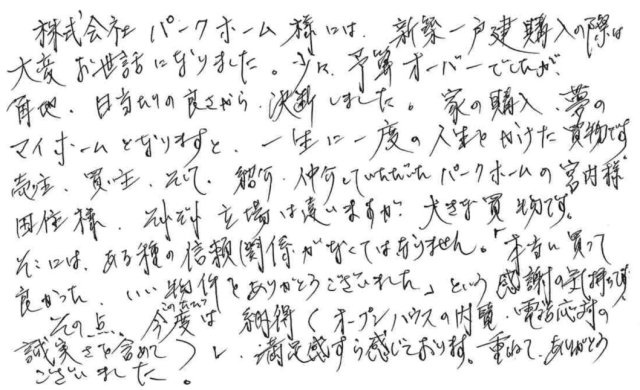 株式会社 パークホーム 様には、新築一戸建購入の際は
大変お世話になりました。少々、予算オーバーでしたが、
角地、日当たりの良さから、決断しました。家の購入、夢の
マイホームとなりますと、一生に一度の人生をかけた買物です
売主、買い主、そして、紹介、仲介していただいたパークホームの宮内様
田住様、それぞれ立場は違いますが、大きな買い物です。
そこには、ある種の信頼関係がなくてはなりません。「本当に買って
良かった、いい物件をありがとうございました」という感謝の気持ちです。
その点、今度は納得（オープンハウスの内覧、電話応対の
誠実さを含めて）し、満足感すら感じております。重ねて、ありがとう
ございました。